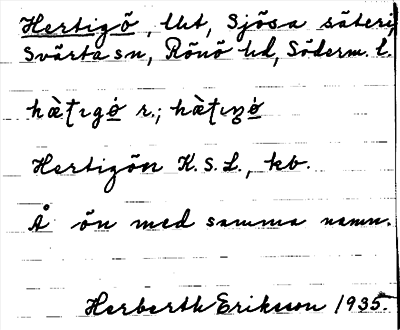 Hertigö, lht, Sjösa säteri,
Svärta sn, Rönö hd, Söderm. l.
hæ̀t̨ɩgö̀ r.;
Hertigön K. S. L., kb.
Å ön med samma namn.
Herberth Eriksson 1935.